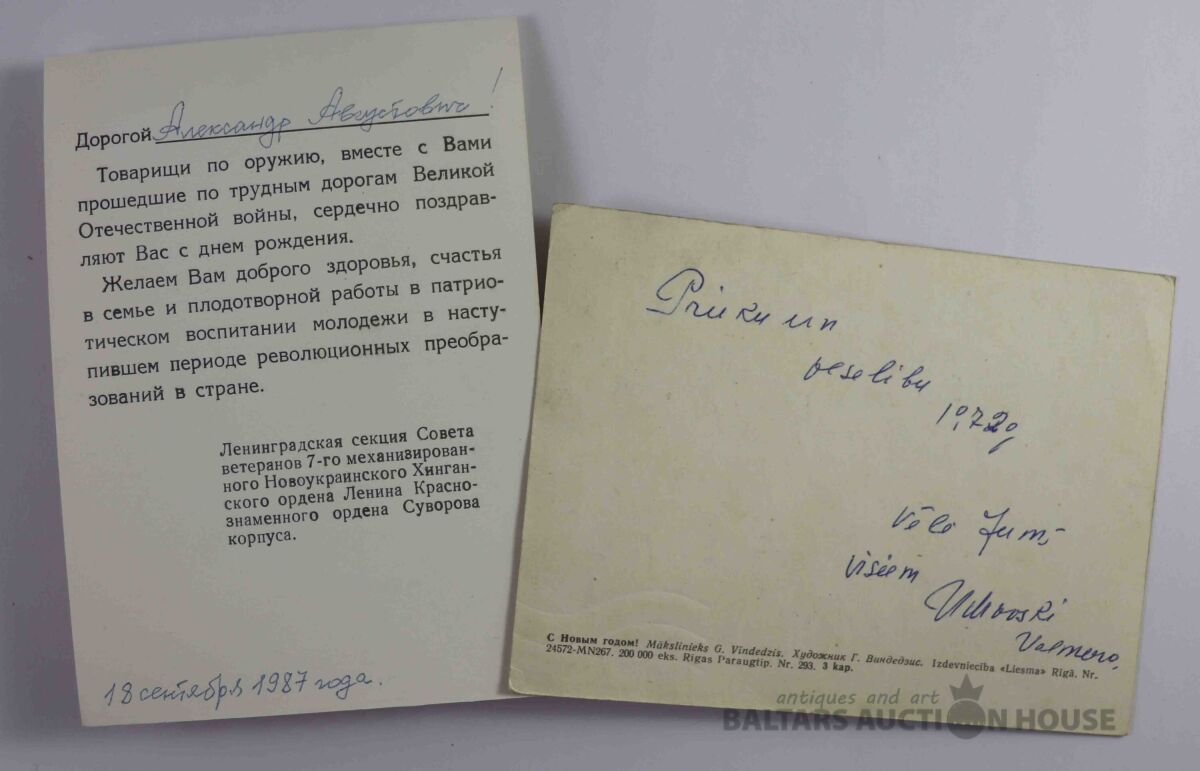 Дорогой Александр Августович!
Товарищи по оружию, вместе с Вами
прошедшие по трудным дорогам Великой
Отечественной войны, сердечно поздрав-
ляют Вас с днем рождения.
Желаем Вам доброго здоровья, счастья
в семье и плодотворной работы в патрио-
тическом воспитании молодежи в насту-
пившем периоде революционных преобра-
зований в стране.
Ленинградская секция Совета
ветеранов 7-го механизирован-
ного Новоукраинского Хинган-
ского ордена Ленина Красно-
знаменного ордена Суворова
корпуса.
18 сентября 1987 года.
Prieku un
veselību
1972g
Vēlē Jums
visiem
Valmierā
С Новым годом! Mākslinieks G. Vindedzis. Художник Г. Виндедзис. Izdevniecība «Liesma» Rīgā. Nr.
24572-MN267. 200 000 eks. Rīgas Paraugtip. Nr. 293. 3 kap.
antiques and art
BALTARS AUCTION HOUSE